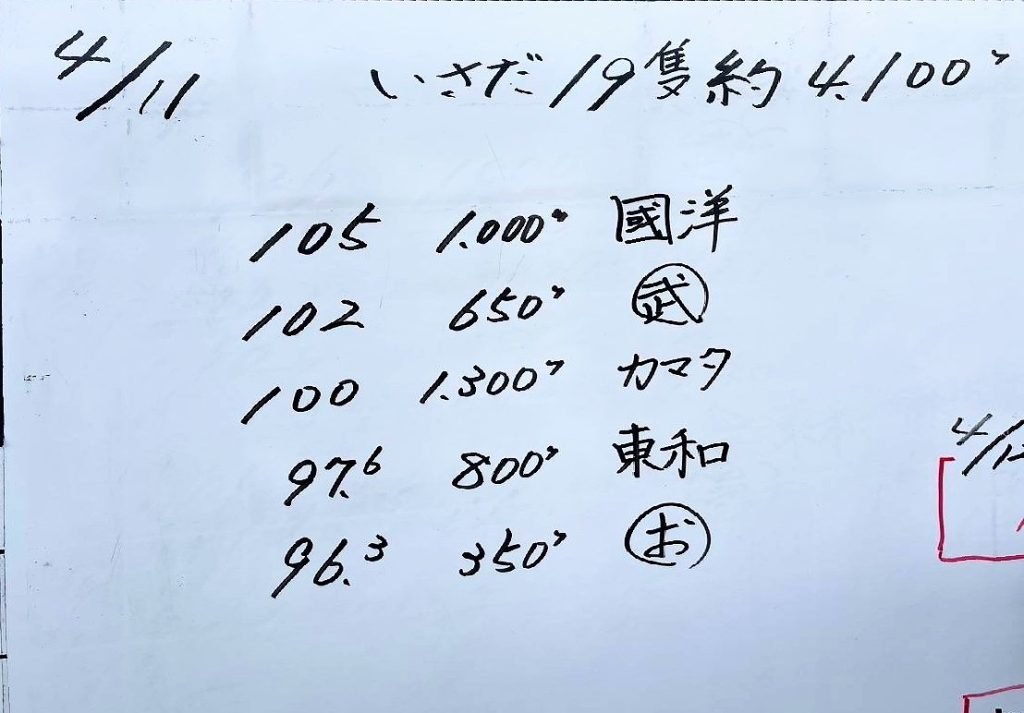 4/11 いさだ 19隻 約4.100〃
105 1.000〃 國洋
102 650〃 ㊥武
100 1.300〃 カマタ
97.6 800〃 東和
96.3 350〃 お
4/12